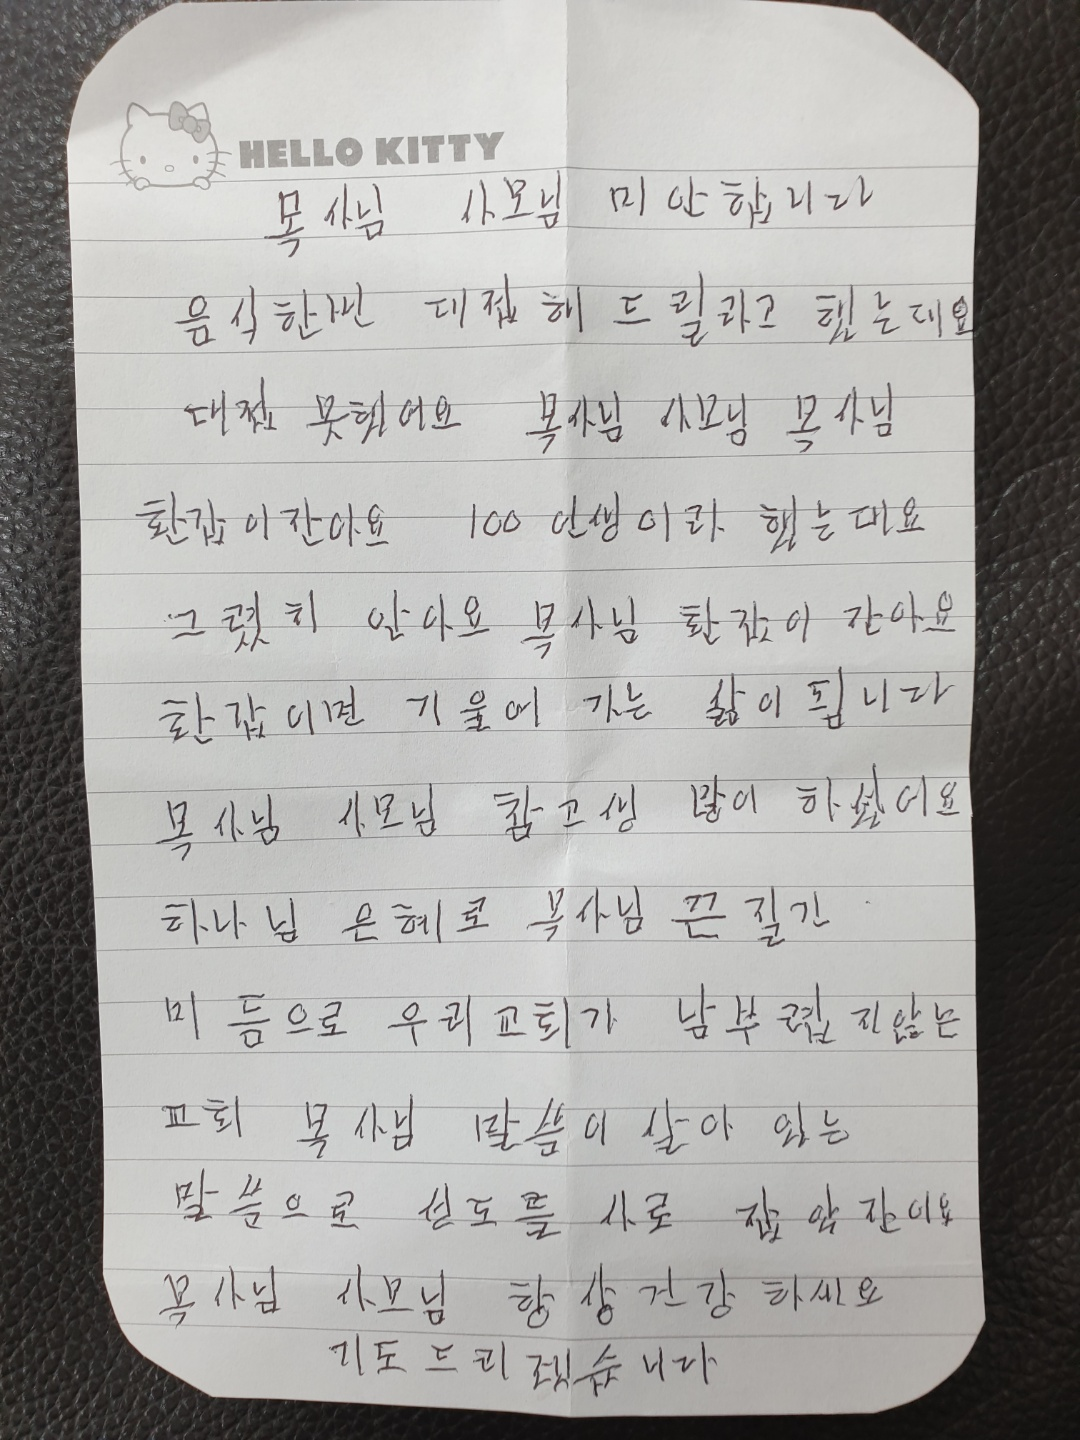 HELLO KITTY
목사님 사모님 미안합니다
음식한번 대접해 드릴라고 했는대요
대접 못했어요 목사님 사모님 목사님
환갑이잔아요 100 인생이라 했는대요
그렇치 안아요 목사님 환갑이 잔아요
환갑이면 기울어 가는 삶이 됩니다
목사님 사모님 참고생 많이 하셨어요
하나님 은혜로 목사님 끈질긴
미듬으로 우리교회가 남부렵지않는
교회 목사님 말씀이 살아 있는
말씀으로 성도를 사로 잡았잔아요
목사님 사모님 항상건강하세요
기도드리겠습니다